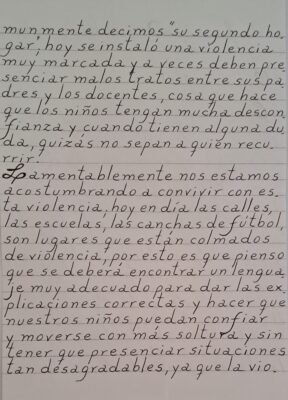 munmente decimos "su segundo ho-
gar", hoy se instaló una violencia
muy marcada y a veces deben pre-
senciar malos tratos entre sus pa-
dres y los docentes, cosa que hace
que los niños tengan mucha descon-
fianza y cuando tienen alguna du-
da, quizás no sepan a quién recu-
rrir.
Lamentablemente nos estamos
acostumbrando a convivir con es-
ta violencia, hoy en día las calles,
las escuelas, las canchas de fútbol,
son lugares que están colmados
de violencia, por esto es que pienso
que se deberá encontrar un lengua-
je muy adecuado para dar las ex-
plicaciones correctas y hacer que
nuestros niños puedan confiar
y moverse con más soltura y sin
tener que presenciar situaciones
tan desagradables, ya que la vio-